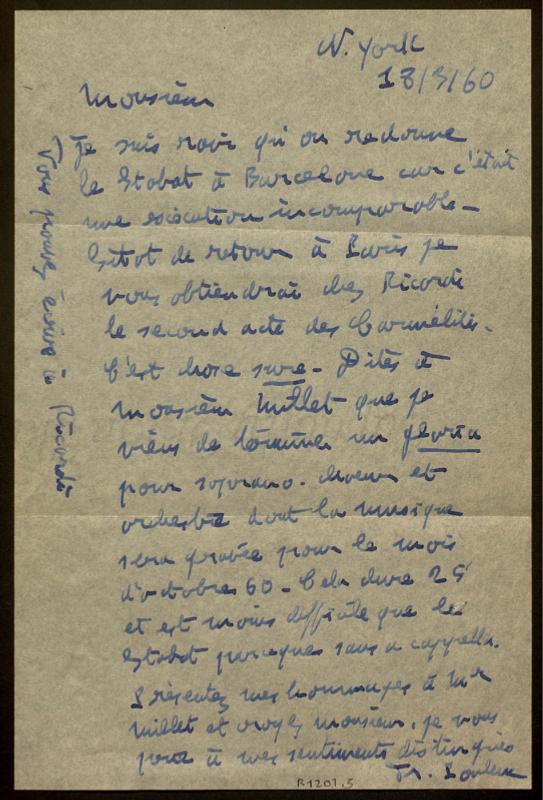 N. York
18/3/60
Monsieur
Je suis ravi qu'on redonne
le Stabat à Barcelone car c'était
une exécution incomparable-
Sitot de retour à Paris je
vous obtiendrai chez Ricordi
le second acte des Carmélites.
C'est chose sure - Dites à
monsieur Millet que je
viens de terminer un gloria
pour soprano. choeur et
orchestre dont la musique
sera gravée pour le mois
d'octobre 60 - Cela dure 25'
et est moins difficile que le
Stabat parceque sans a cappella.
Présentez mes hommages à Mr
Millet et croyez monsieur, je vous
prie à mes sentiments distingués
Fr. Poulenc
Vous pouvez écrire à Ricordi
R1201.5